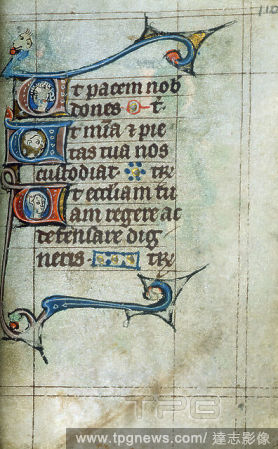 110
Ut pacem nob
dones t̄
Ut mīa ⁊ pie
tas tua nos
custodiat
Ut eccliam tu
am regere ac
defensare dig
neris
TPG
www.tpgnews.com/ 達志影像